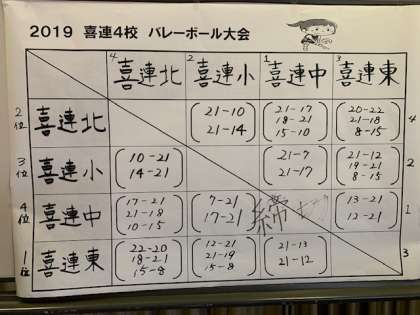 2019 喜連4校 バレーボール大会
4 2 1 3
喜連北 喜連小 喜連中 喜連東
21-17 20-22
2位 喜連北 21-10 18-21 21-18 4
21-14 15-10 8-15
21-12
3位 喜連小 10-21 21-7 19-21 2
14-21 21-17 8-15
17-21 7-21 13-21
4位 喜連中 21-18 17-21 12-21 1
10-15
22-20 12-21 21-13
1位 喜連東 18-21 21-19 21-12 3
15-8 15-8